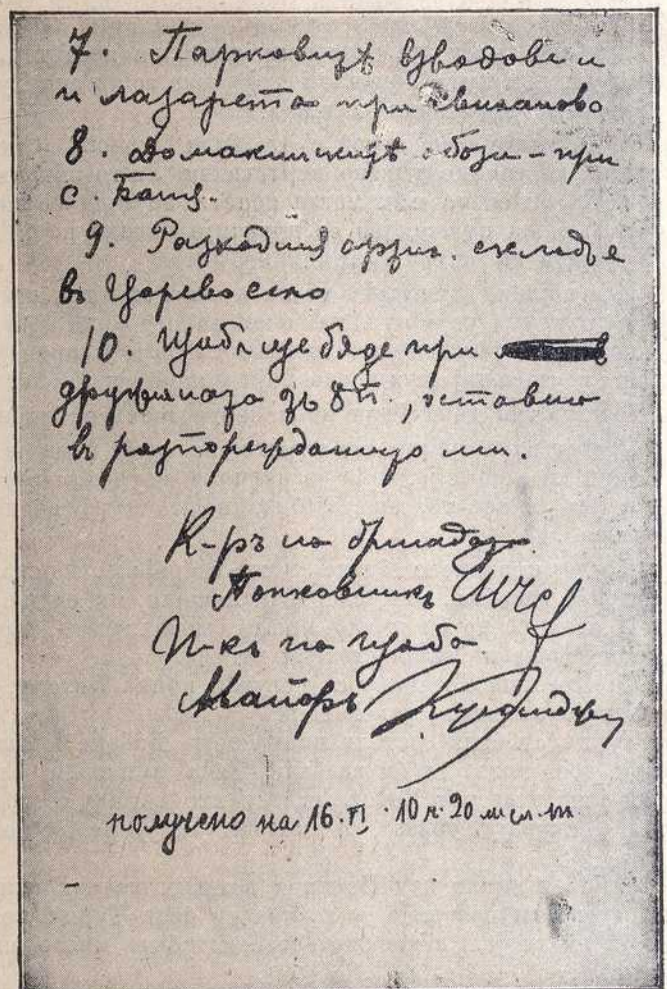 7. Парковитѣ взводове и
и лазарета при Звиганово
8. Домакинскитѣ обози – при
с. Баня.
9. Разходния арт. складъ е
въ Царево село
10. Щабъ ще бѫде при
дружината зъ 8 п., оставена
въ разпореждането ми.
К-ръ на бригадата
Полковникъ
Н-къ на щаба
Майоръ
получено на 16.VI 10 ч. 20 м. сл. пл.